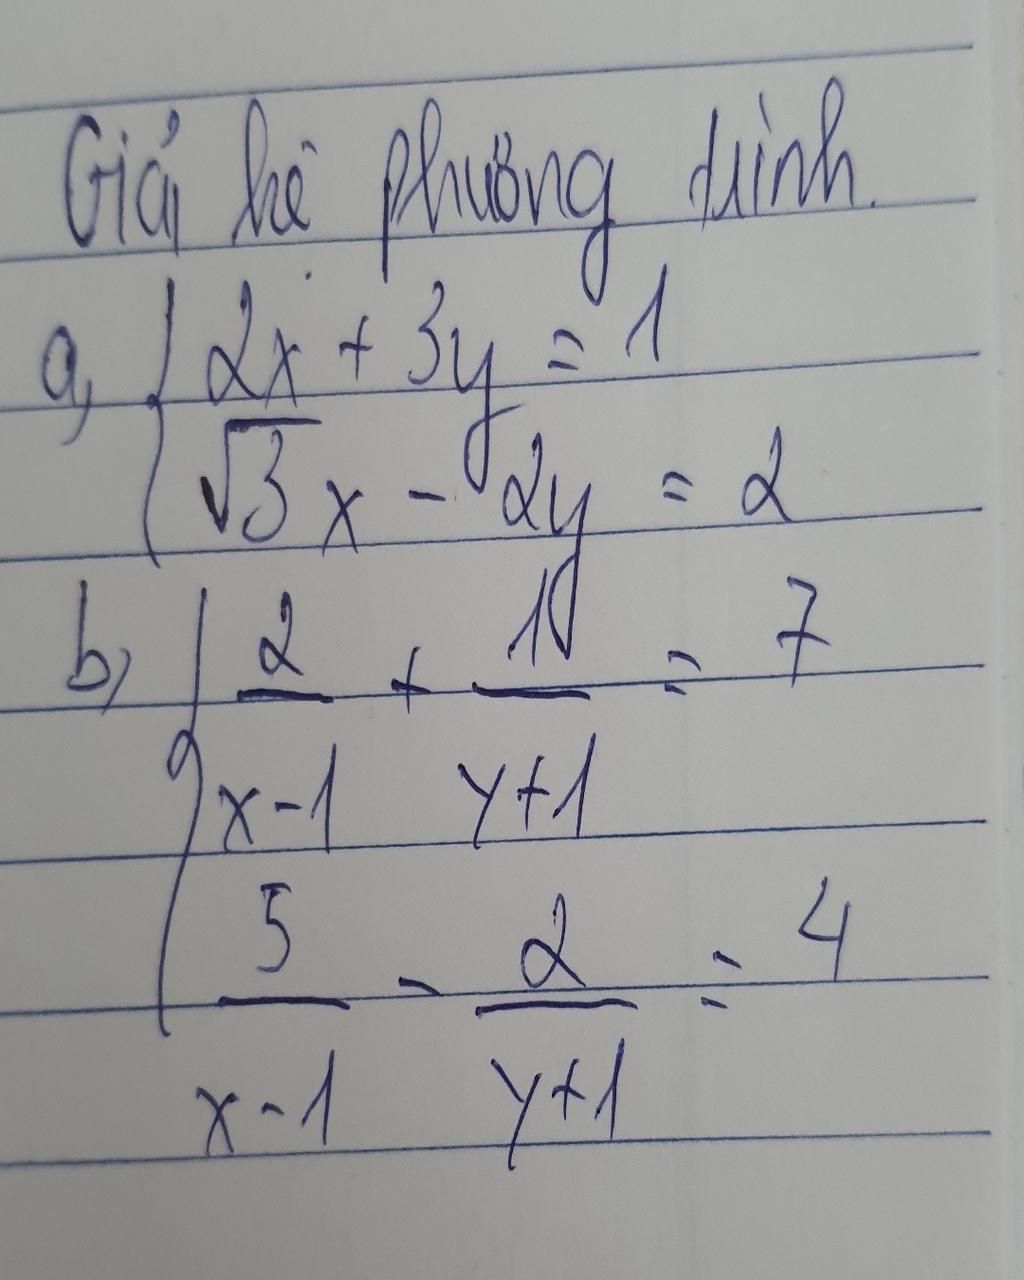 Giải hệ phương trình.
a, { 2x + 3y = 1
√3 x - 2y = 2
b, { 2/(x-1) + 1/(y+1) = 7
5/(x-1) - 2/(y+1) = 4